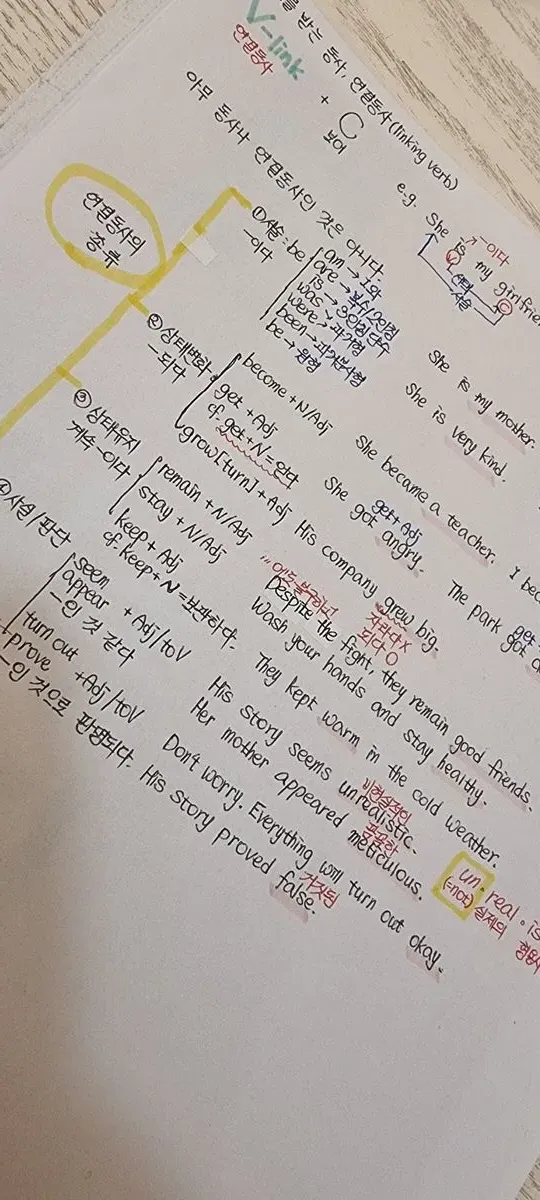 을 받는 동사, 연결동사(linking verb)
V-link + C
연결동사 보어
e.g. She is my girlfrie
-이다
아무 동사나 연결동사인 것은 아니다.
연결동사의 종류
① 사슬 : be
-이다
am → 1인칭
are → 복수/2인칭
is → 3인칭 단수
was
were → 과거형
been → 과거분사형
be → 원형
She is my mother.
She is very kind.
② 상태변화
-되다
become + N/Adj
get + Adj
cf. get + N = 얻다
grow[turn] + Adj
She became a teacher. I bec
get+Adj
She got angry. The park got
His company grew big.
자라다 X
되다 O
③ 상태유지
계속 -이다
remain + N/Adj
stay + N/Adj
keep + Adj
cf. keep + N = 보관하다.
...에도 불구하고
Despite the fight, they remain good friends.
Wash your hands and stay healthy.
They kept warm in the cold weather.
사실/판단
seem
appear + Adj/toV
-인 것 같다
turn out
prove + Adj/toV
-인 것으로 판명되다.
His story seems unrealistic.
비현실적인
Her mother appeared meticulous.
꼼꼼한
Don't worry. Everything will turn out okay.
His story proved false.
거짓된
un·real·is
(=not) 실제의 형용사